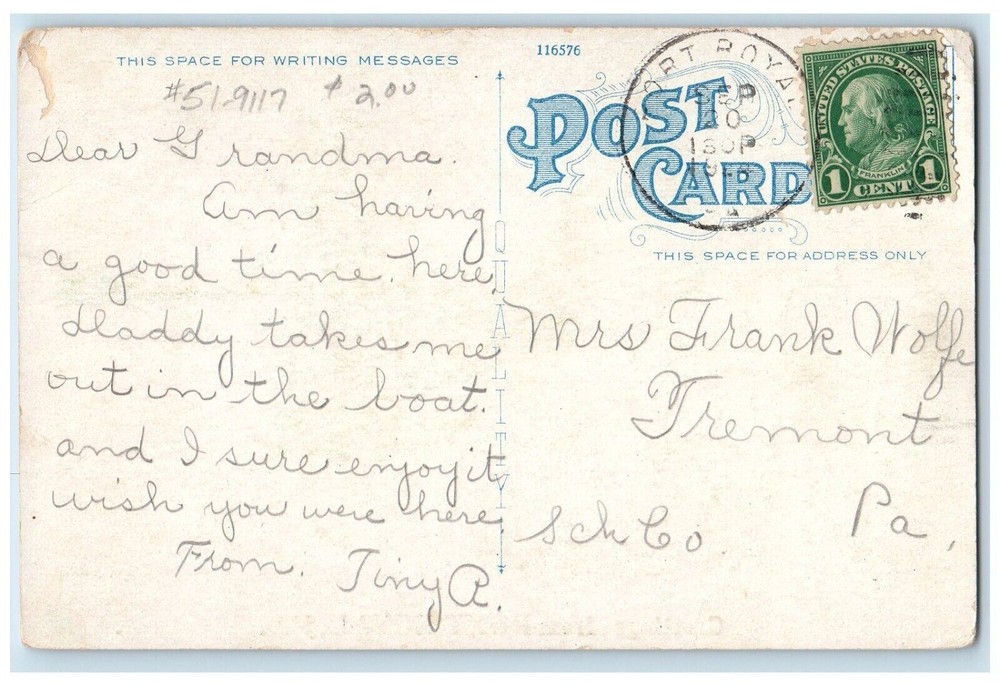 THIS SPACE FOR WRITING MESSAGES
#51-9117 $2.00
Dear Grandma.
Am having
a good time here.
Daddy takes me
out in the boat.
and I sure enjoy it
wish you were here
From. Tiny R.
QUALITY
116576
POST CARD
PORT ROYAL
SEP
UNITED STATES POSTAGE
FRANKLIN
1 CENT 1
THIS SPACE FOR ADDRESS ONLY
Mrs Frank Wolfe
Tremont
Pa,
Sch Co.